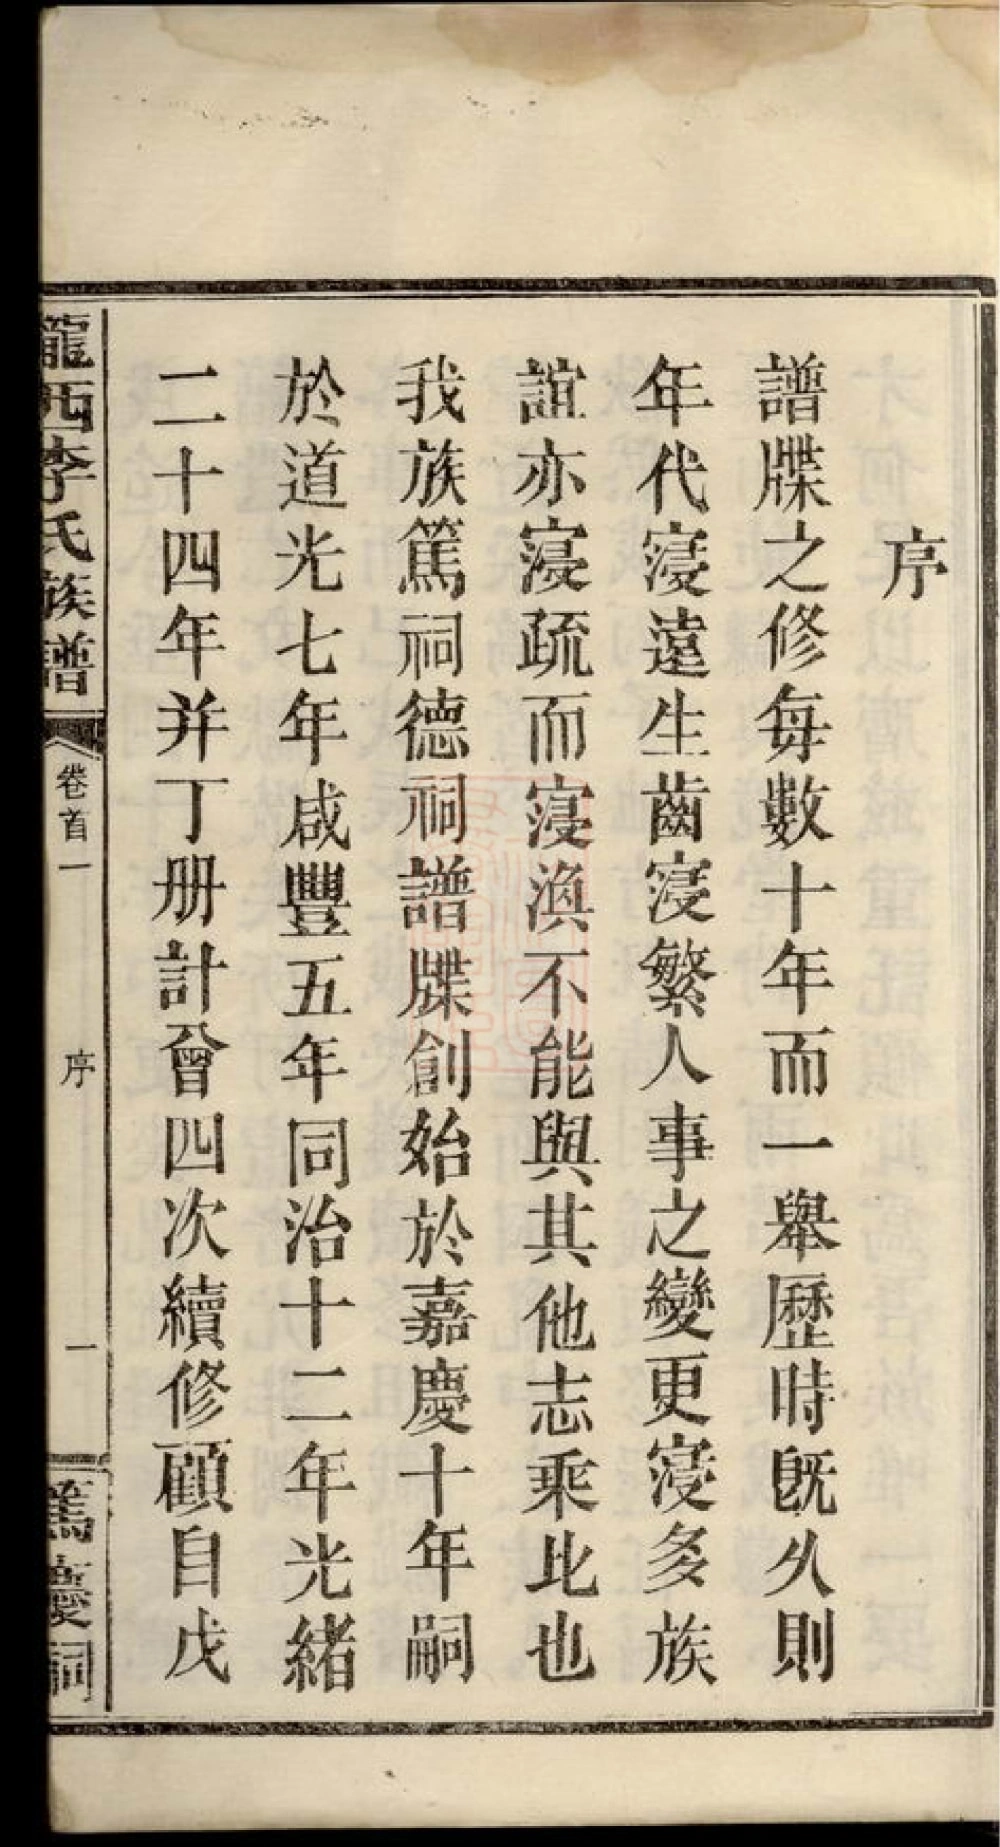 序
譜牒之修每數十年而一舉歷時旣久則
年代寖遠生齒寖繁人事之變更寖多族
誼亦寖疏而寖渙不能與其他志乘比也
我族篤祠德祠譜牒創始於嘉慶十年嗣
於道光七年咸豐五年同治十二年光緒
二十四年并丁册計會四次續修顧自戊
隴西李氏族譜
卷首一
序
一
篤慶祠